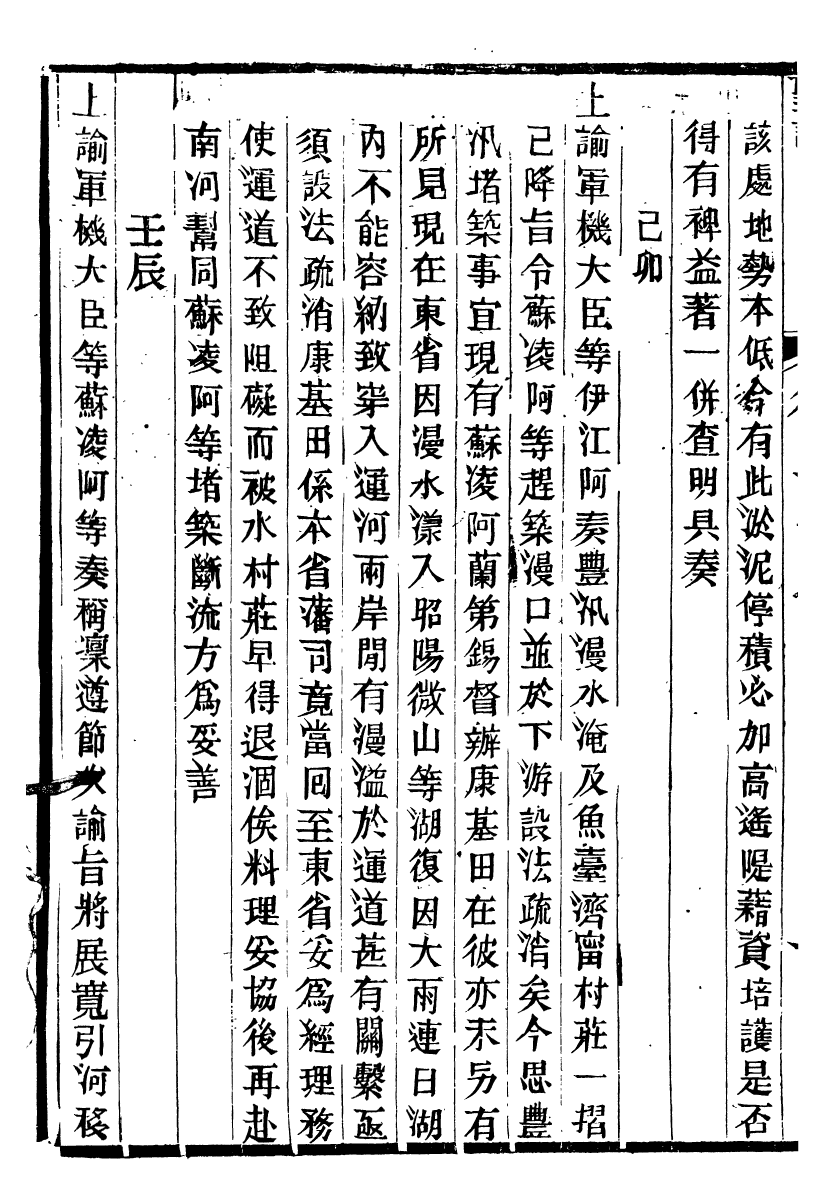 該處地勢本低今有此淤泥停積必加高遙隄藉資培護是否
得有裨益著一併查明具奏
己卯
上諭軍機大臣等伊江阿奏豐汛漫水淹及魚臺濟甯村莊一摺
已降旨令蘇凌阿等趕築漫口並於下游設法疏消矣今思豐
汛堵築事宜現有蘇凌阿蘭第錫督辦康基田在彼亦未另有
所見現在東省因漫水漾入昭陽微山等湖復因大雨連日湖
內不能容納致穿入運河兩岸閒有漫溢於運道甚有關繫亟
須設法疏消康基田係本省藩司竟當回至東省妥為經理務
使運道不致阻礙而被水村莊早得退涸俟料理妥協後再赴
南河幫同蘇凌阿等堵築斷流方為妥善
壬辰
上諭軍機大臣等蘇凌阿等奏稱凜遵節次諭旨將展寬引河移